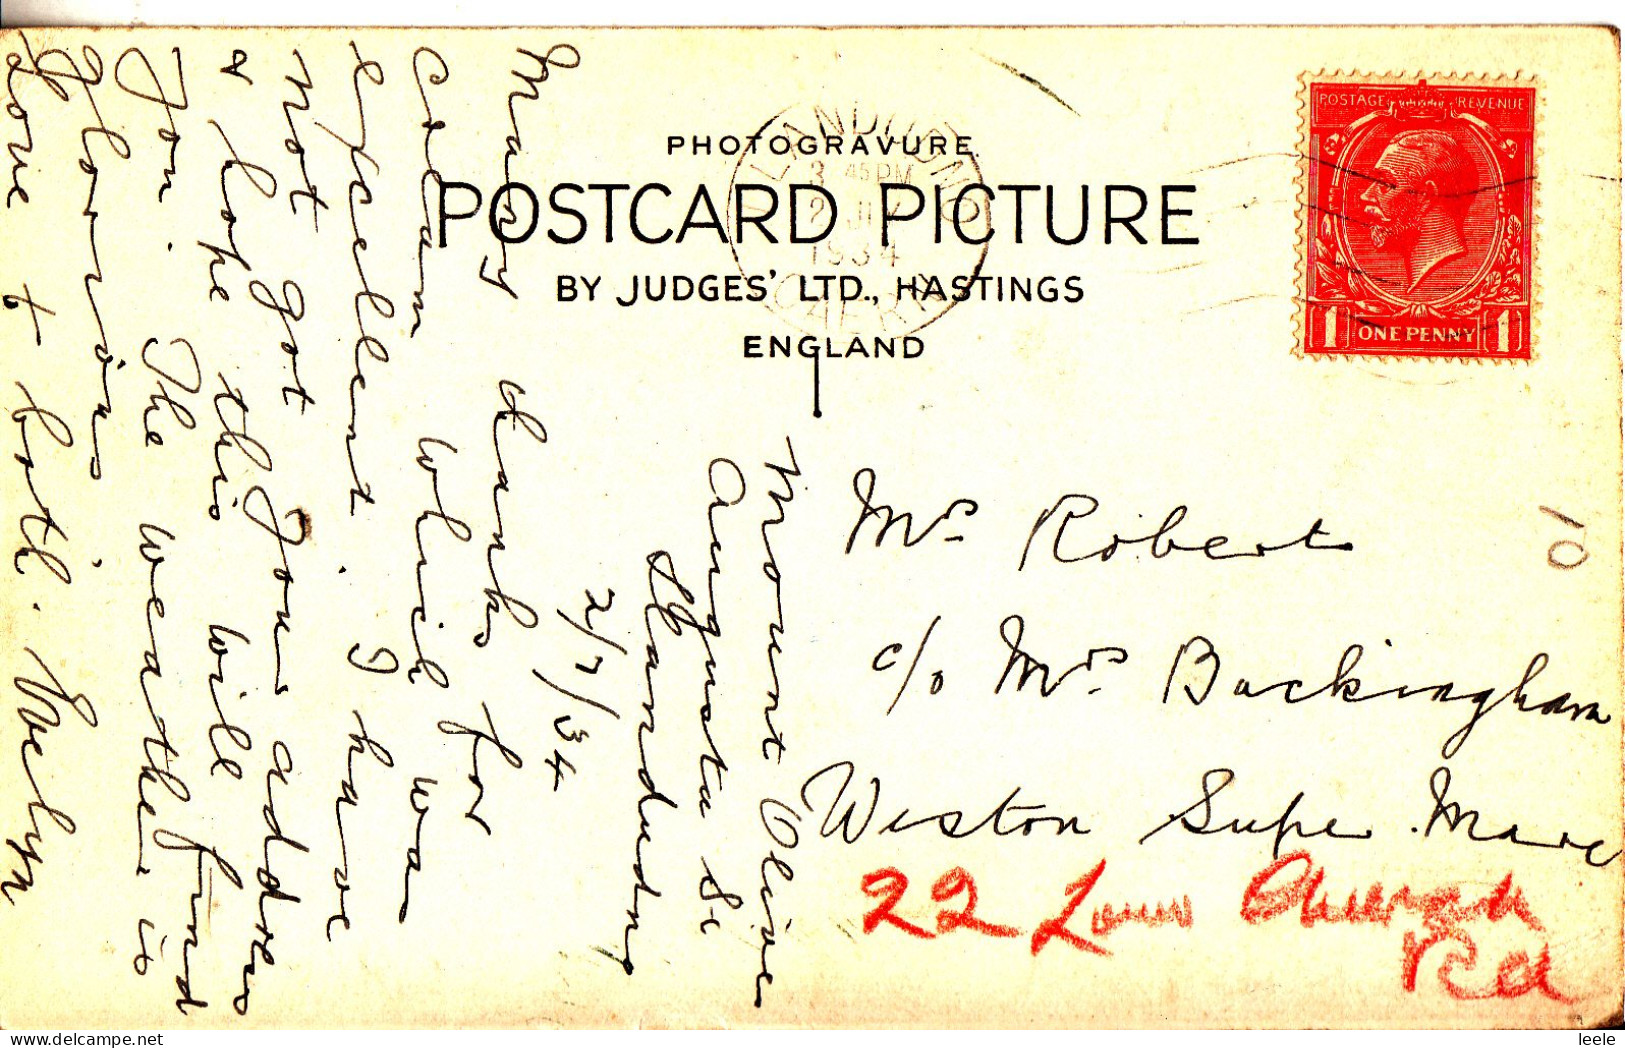 PHOTOGRAVURE
POSTCARD PICTURE
BY JUDGES' LTD., HASTINGS
ENGLAND
LLANDUDNO
3 45 PM
2 JLY
1934
POSTAGE REVENUE
1 ONE PENNY 1
Mount Olive
Augusta St
Llandudno
2/7/34
Many thanks for
cream which was
excellent. I have
not got your address
& hope this will find
you. The weather is
glorious.
Love to both. Evelyn
Mrs Roberts
c/o Mrs Buckingham
Weston Super Mare
22 Lower Church
Rd
10
leele